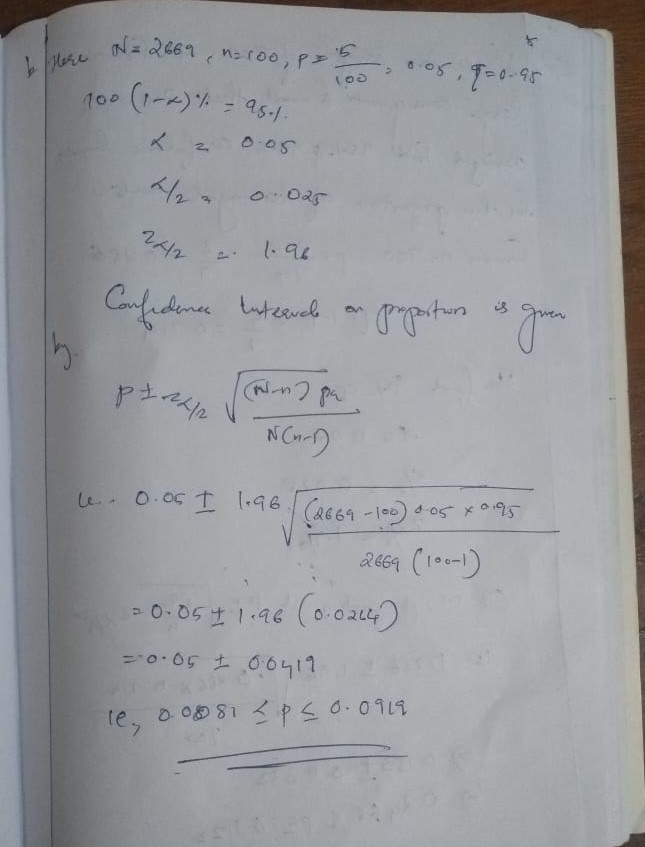 b. Here N = 2669, n=100, p = 5/100 = 0.05, q=0.95
100 (1-α)% = 95%
α = 0.05
α/2 = 0.025
z α/2 = 1.96
Confidence Intervals on proportions is given
by.
p ± z α/2 √ (N-n) pq / N(n-1)
ie. 0.05 ± 1.96 √ (2669 - 100) 0.05 × 0.95 / 2669 (100-1)
= 0.05 ± 1.96 (0.0214)
= 0.05 ± 0.0419
ie, 0.0081 ≤ p ≤ 0.0919